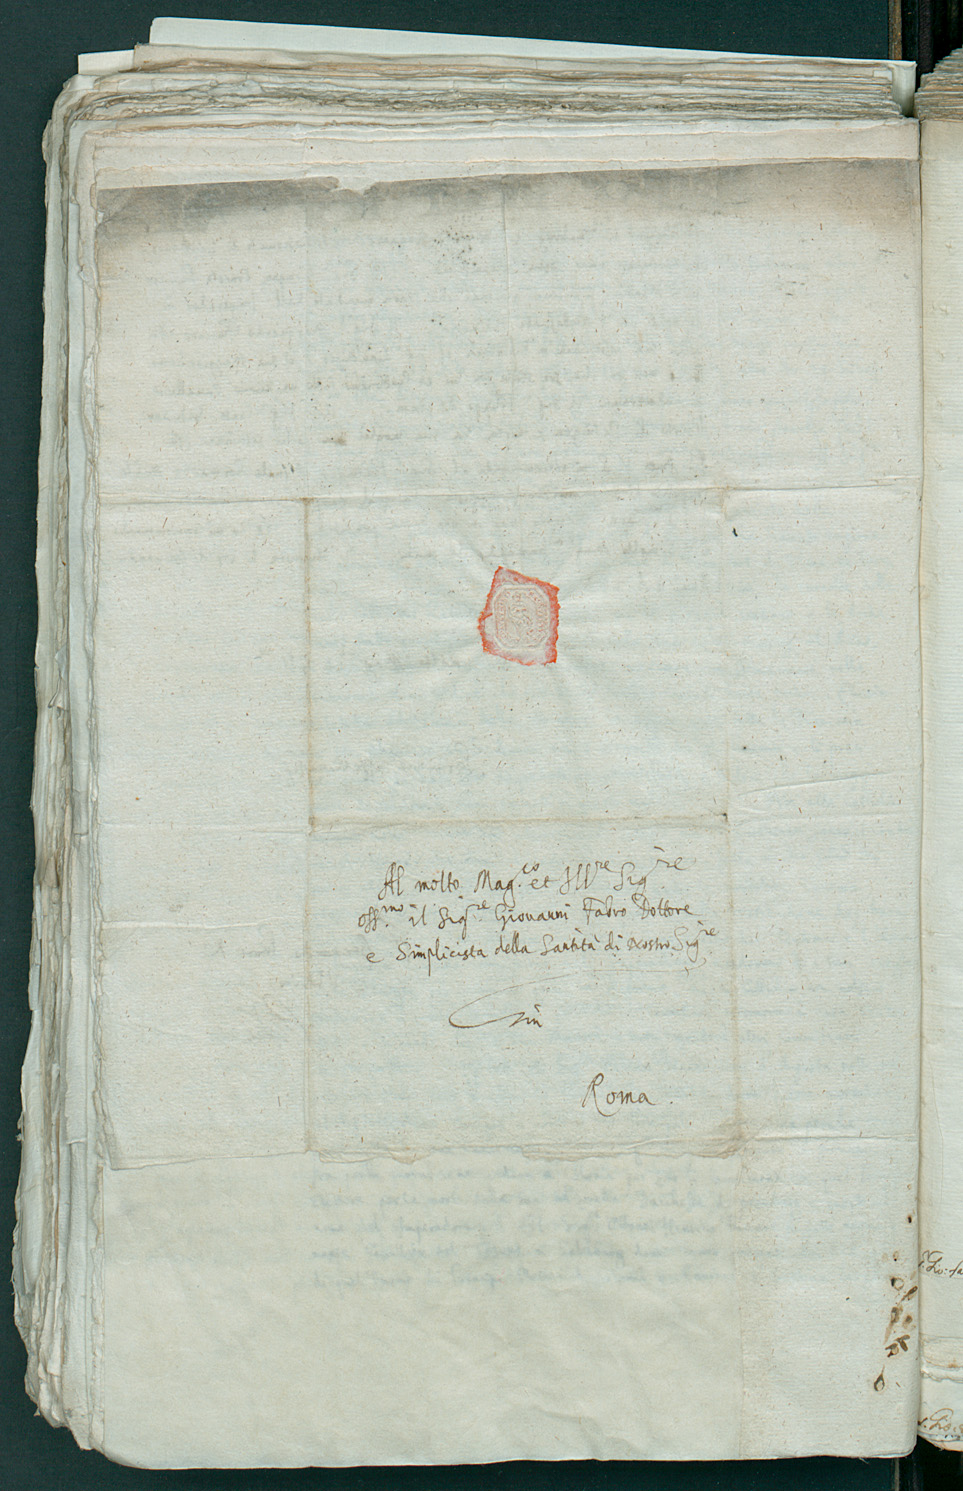 Al molto Mag.co et Ill.re Sig.re
oss.mo il Sig.re Giovanni Fabro Dottore
e Simplicista della Santità di Nostro Sig.re
in
Roma.